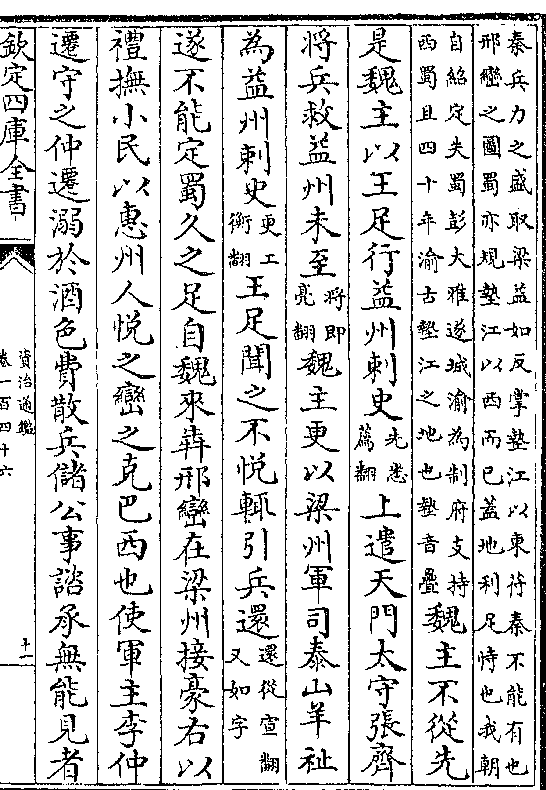 秦兵力之盛取梁益如反掌墊江以東苻秦不能有也
邢巒之圖蜀亦規墊江以西而已蓋地利足恃也我朝
自紹定失蜀彭大雅遂城渝為制府支持
西蜀且四十年渝古墊江之地也墊音疊
魏主不從先
是魏主以王足行益州刺史先悉薦翻上遣天門太守張齊
將兵救益州未至將即亮翻魏主更以梁州軍司泰山羊祉
為益州刺史更工衡翻王足聞之不悅輒引兵還還從宣翻又如字
遂不能定蜀久之足自魏來犇邢巒在梁州接豪右以
禮撫小民以惠州人悅之巒之克巴西也使軍主李仲
遷守之仲遷溺於酒色費散兵儲公事諮承無能見者
欽定四庫全書
資治通鑑
卷一百四十六
十一